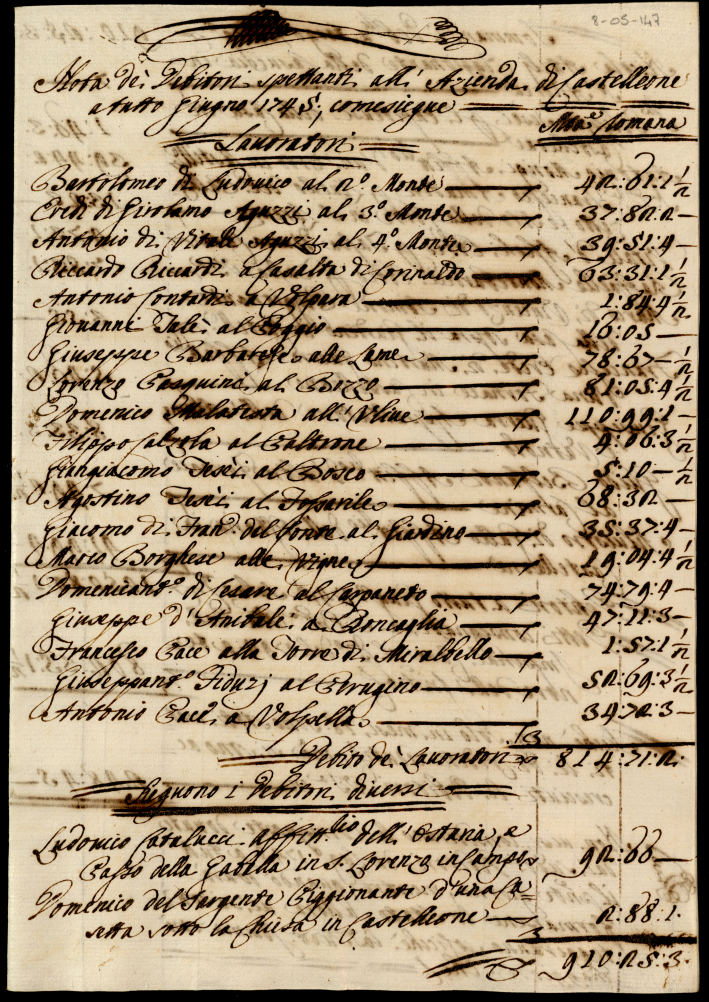 8-05-147
Nota de' Debitori spettanti all' Azienda di Castelleone
a tutto Giugno 1745, come siegue
Mon.a Romana
Lavoratori
Bartolomeo di Ludovico al 2.o Monte 42:61:1 1/2
Eredi di Girolamo Aguzzi al 3.o Monte 37:82:2
Antonio di Vitale Aguzzi al 4.o Monte 39:51:4
Riccardo Riccardi a Casalta di Corinaldo 63:31:1 1/2
Antonio Contardi a Volpara 1:84:4 1/2
Giovanni Tale' al Poggio 16:05
Giuseppe Barbarese alle Lame 78:67 1/2
Lorenzo Pasquini al Bozzo 81:05:4 1/2
Domenico Malatesta all' Ulive 110:99:1
Filippo Calzola al Paltrone 4:06:3 1/2
Giangiacomo Tesei al Bosco 5:10 1/2
Agostino Tesei al Fossarile 68:32
Giacomo di Fran.o del Conte al Giardino 35:37:4
Marco Borghese alle Vigne 19:04:4 1/2
Domenicant.o di Cesare al Carpaneto 74:79:4
Giuseppe d' Anibale a Roncaglia 47:11:3
Francesco Pace alla Torre di Miralbello 1:57:1 1/2
Giuseppant.o Fiduzj al Perugino 52:69:3 1/2
Antonio Pace a Volpella 34:72:3
Debito de' Lavoratori 814:71:2
Sieguono i Debitori diversi
Ludovico Catalucci affitt.rio dell' Ostaria, e
Passo della Gabella in S. Lorenzo in Campo 92:66
Domenico del Sargente Piggionante d'una Ca=
setta sotto la Chiesa in Castelleone 2:88:1
910:25:3